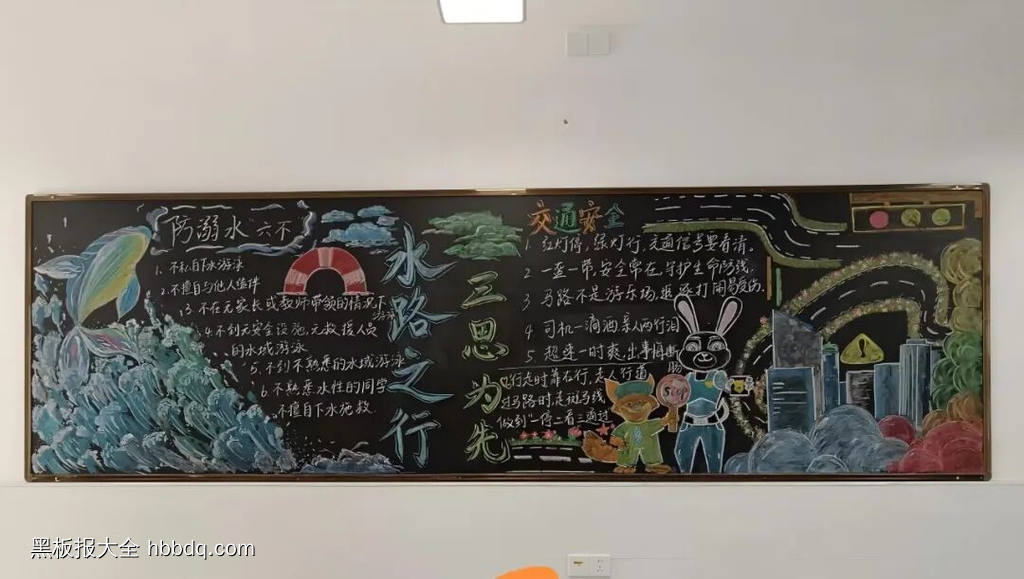 防溺水“六不”
1. 不私自下水游泳
2. 不擅自与他人结伴
3. 不在无家长或教师带领的情况下
游泳
4. 不到无安全设施、无救援人员
的水域游泳
5. 不到不熟悉的水域游泳
6. 不熟悉水性的同学
不擅自下水施救.
水路之行
三思为先
交通安全
1. 红灯停,绿灯行,交通信号要看清.
2 一盔一带,安全常在,守护生命防线.
3 马路不是游乐场,追逐打闹易受伤.
4 司机一滴酒,亲人两行泪
5 超速一时爽,出事肝肠断
6.行走时靠右行,走人行道
过马路时,走斑马线,
做到“一停二看三通过”
黑板报大全 hbbdq.com